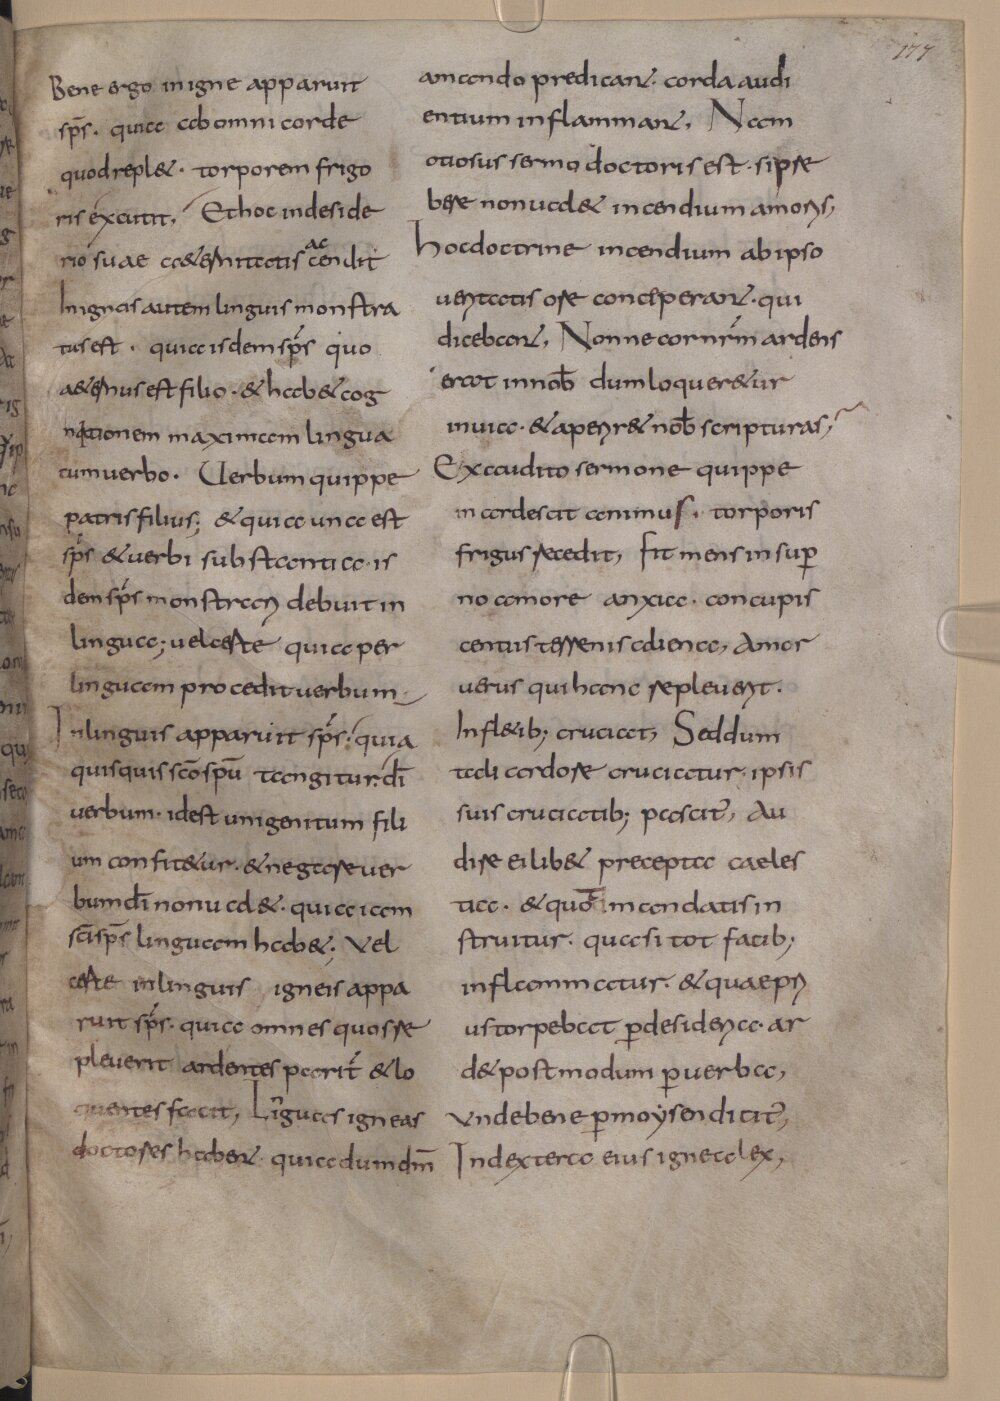 177
Bene ergo inigne apparuit
sp̄s. quia abomni corde
quod repl&. torporem frigo
ris excutit, Ethoc indeside
rio suae aeternitatis accendit
Inigneis autem linguis monstra
tus est. quia isdem sp̄s quo
a&ernus est filio. & hab& cog
nationem maximam lingua
cum verbo. Uerbum quippe
patris filius; & quia una est
sp̄s & uerbi substantia. is
dem sp̄s monstrari debuit in
lingua; uel certe quia per
linguam procedit uerbum.
Inlinguis apparuit sp̄s. quia
quisquis sc̄o sp̄u tangitur. d̄i
uerbum. idest unigenitum fili
um confit&ur. & negare uer
bum d̄i non ual&. quia iam
sc̄i sp̄s linguam hab&; Vel
certe inlinguis igneis appa
ruit sp̄s. quia omnes quos re
pleuerit ardentes parit̄ & lo
quentes facit, Līguas igneas
doctores haben̄. quia dum dm̄
amando predican̄. corda audi
entium inflamman̄, Nam
otiosus sermo doctoris est. si pre
bere non ual& incendium amoris,
hoc doctrine incendium ab ipso
ueritatis ore conceperan̄. qui
diceban̄, Nonne cor nr̄m ardens
erat in nob̄ dum loquer&ur
in uia. & aperir& nob̄ scripturas,
Ex audito sermone quippe
incardescit animus. torporis
frigus recedit, fit mens in sup̱
no amore anxia. concupis
centiis terrenis aliena, Amor
uerus qui hanc repleuerit.
In fl&ib; cruciat, Sed dum
tali ardore cruciatur. ipsis
suis cruciatib; pascit̄, Au
dire ei lib& precepta caeles
tia. & quot̄ mandatis in
struitur. quasi tot facib;
inflammatur. & quae pri
us torpebat p̱desideria. ar
d& postmodum p̱uerba,
Vnde bene p̱moẏsen dicit̄,
In dextera eius ignea lex,